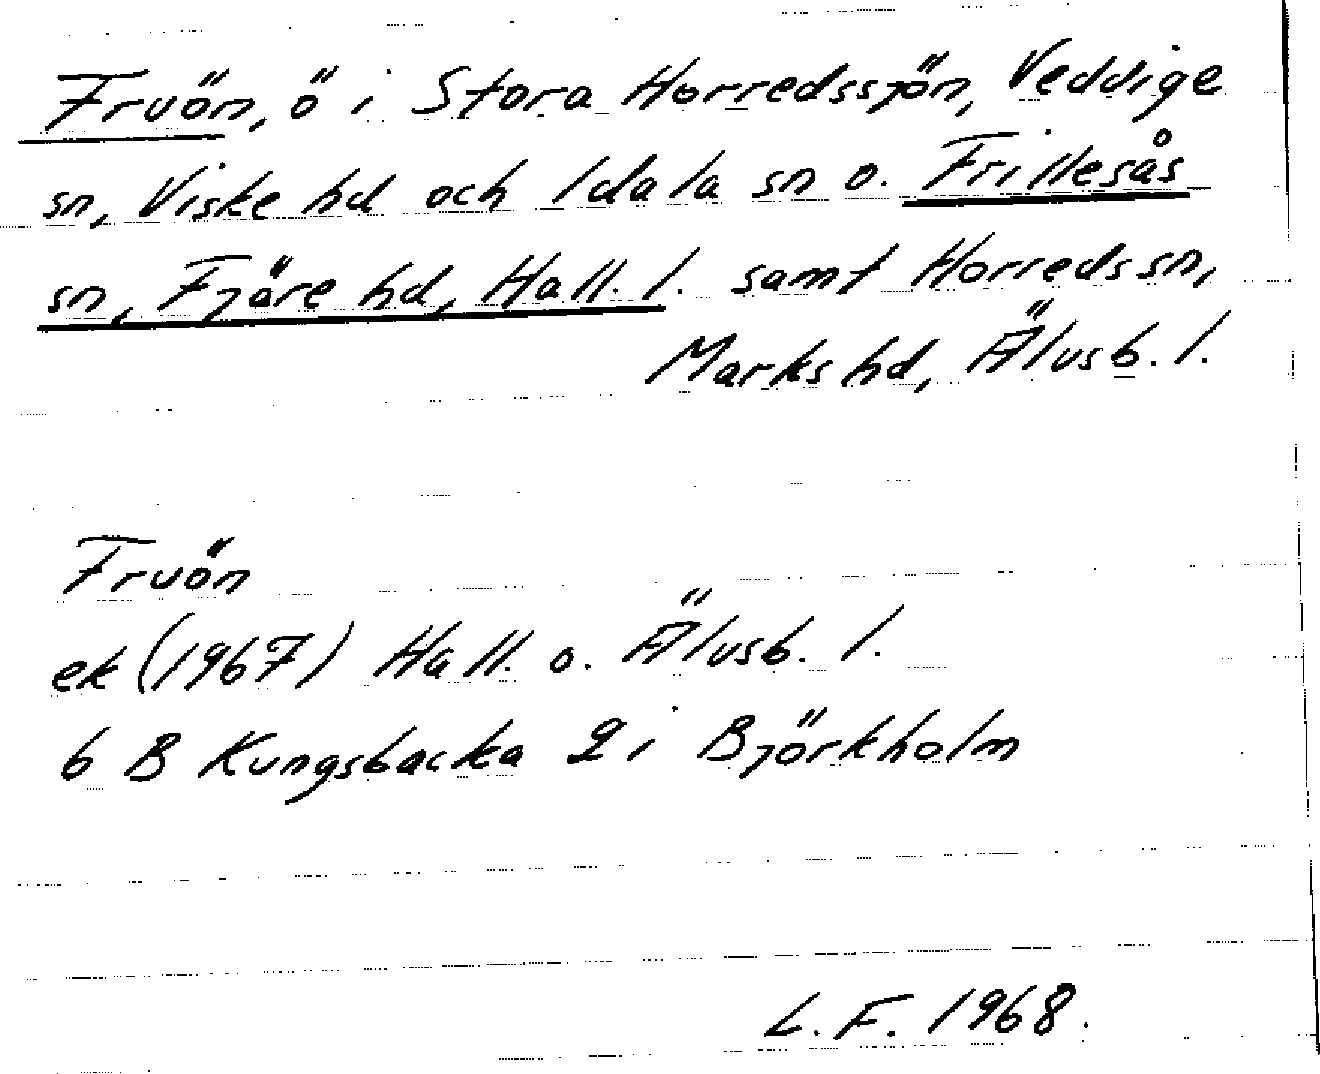 Fruön, ö i Stora Horredssjön, Veddige
sn, Viske hd och Idala sn o. Frillesås
sn, Fjäre hd, Hall. l. samt Horreds sn,
Marks hd, Älvsb. l.
Fruön
ek (1967) Hall. o. Älvsb. l.
6 B Kungsbacka 2 i Björkholm
L. F. 1968.